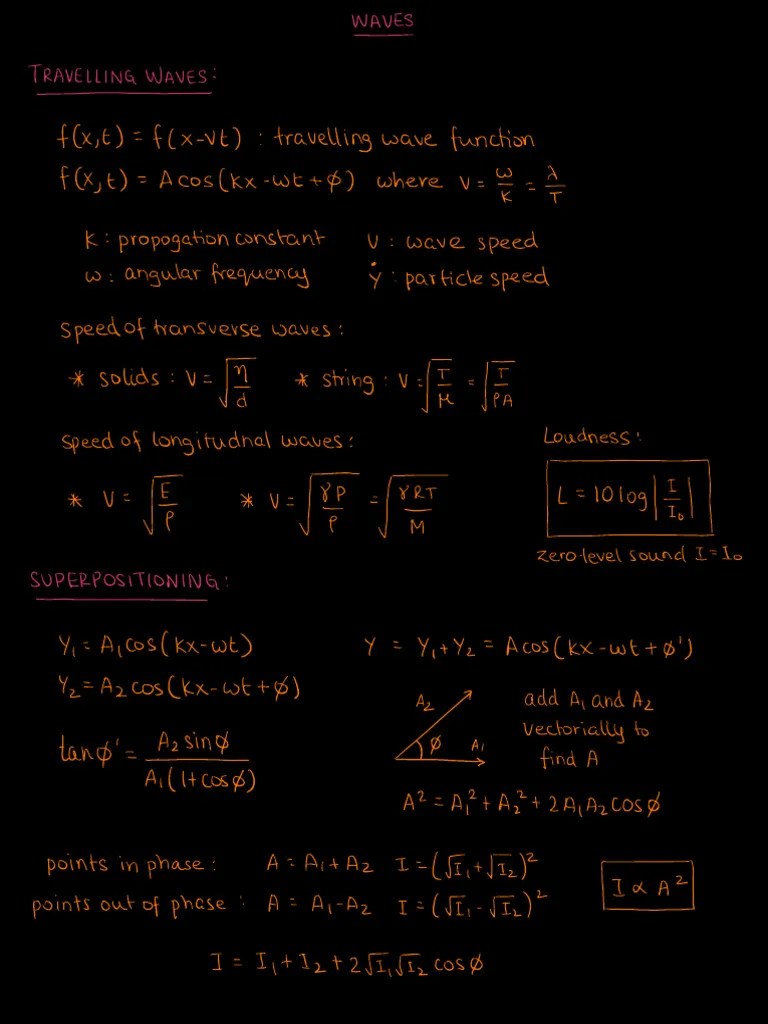 WAVES
TRAVELLING WAVES:
f(x,t) = f(x-vt) : travelling wave function
f(x,t) = Acos(kx-ωt+φ) where v = ω/k = λ/T
k : propogation constant v : wave speed
ω : angular frequency ẏ : particle speed
speed of transverse waves :
* solids : v = √(η/d) * string : v = √(T/μ) = √(T/ρA)
speed of longitudnal waves : Loudness :
* v = √(E/ρ) * v = √(γP/ρ) = √(γRT/M) L = 10log|I/I₀|
zero-level sound I = I₀
SUPERPOSITIONING :
y₁ = A₁cos(kx-ωt) y = y₁+y₂ = Acos(kx-ωt+φ')
y₂ = A₂cos(kx-ωt+φ)
A₂ φ A₁ add A₁ and A₂
vectorially to
find A
tanφ' = A₂sinφ/A₁(1+cosφ)
A² = A₁²+A₂²+2A₁A₂cosφ
points in phase : A = A₁+A₂ I = (√I₁+√I₂)²
points out of phase : A = A₁-A₂ I = (√I₁-√I₂)² I ∝ A²
I = I₁+I₂+2√I₁√I₂ cosφ